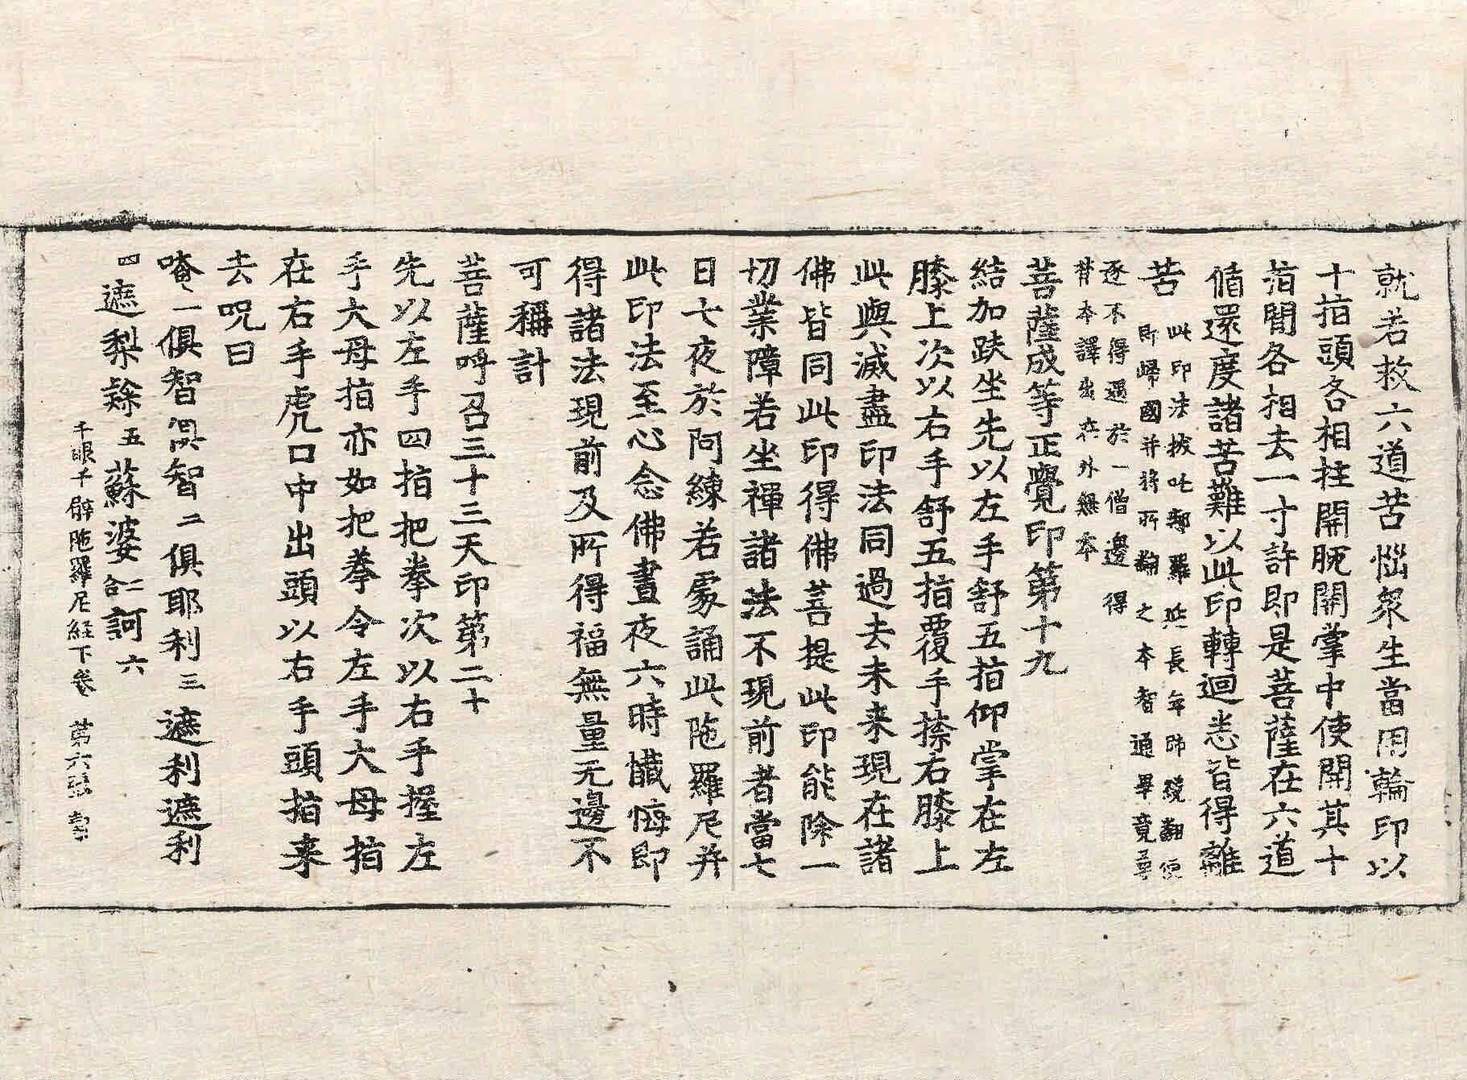 就若救六道苦惱衆生當用輪印以
十指頭各相拄開腕開掌中使開其十
指間各相去一寸許即是菩薩在六道
循還度諸苦難以此印轉迴悉皆得離
苦此印法披吒那羅延長年師繞翻便
即歸國并將所翻之本智通畢竟尋
逐不得遇於一僧邊得
昔本譯出在外無本
菩薩成等正覺印第十九
結加趺坐先以左手舒五指仰掌在左
膝上次以右手舒五指覆手搽右膝上
此與滅盡印法同過去未来現在諸
佛皆同此印得佛菩提此印能除一
切業障若坐禪諸法不現前者當七
日七夜於阿練若處誦此陁羅尼并
此印法至心念佛晝夜六時懺悔即
得諸法現前及所得福無量无邊不
可稱計
菩薩呼召三十三天印第二十
先以左手四指把拳次以右手握左
手大母指亦如把拳令左手大母指
在右手虎口中出頭以右手頭指来
去呪曰
唵一俱智俱智二俱耶利三遮利遮利
四遮梨鵌五蘇婆二合訶六
千眼千臂陁羅尼經下卷 第六張